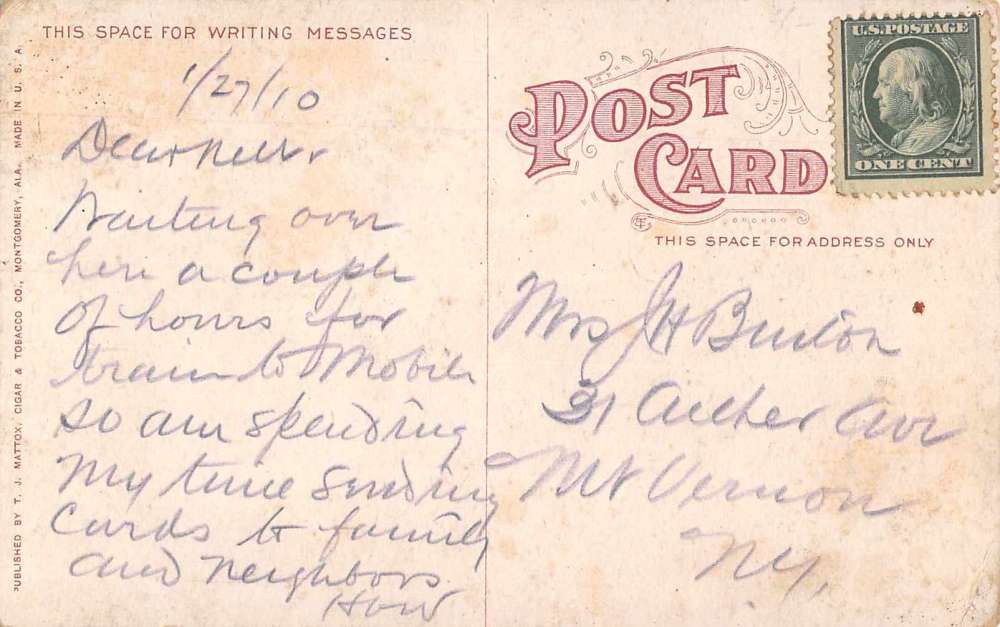 THIS SPACE FOR WRITING MESSAGES
1/27/10
Dear
Waiting over
here a couple
of hours for
train to Mobile
so am spending
my time sending
cards to family
and neighbors
How
PUBLISHED BY T. J. MATTOX, CIGAR & TOBACCO CO., MONTGOMERY, ALA. MADE IN U. S. A.
POST
CARD
U.S. POSTAGE
ONE CENT
THIS SPACE FOR ADDRESS ONLY
Mrs J H Burton
31 Archer Ave
Mt Vernon
NY.